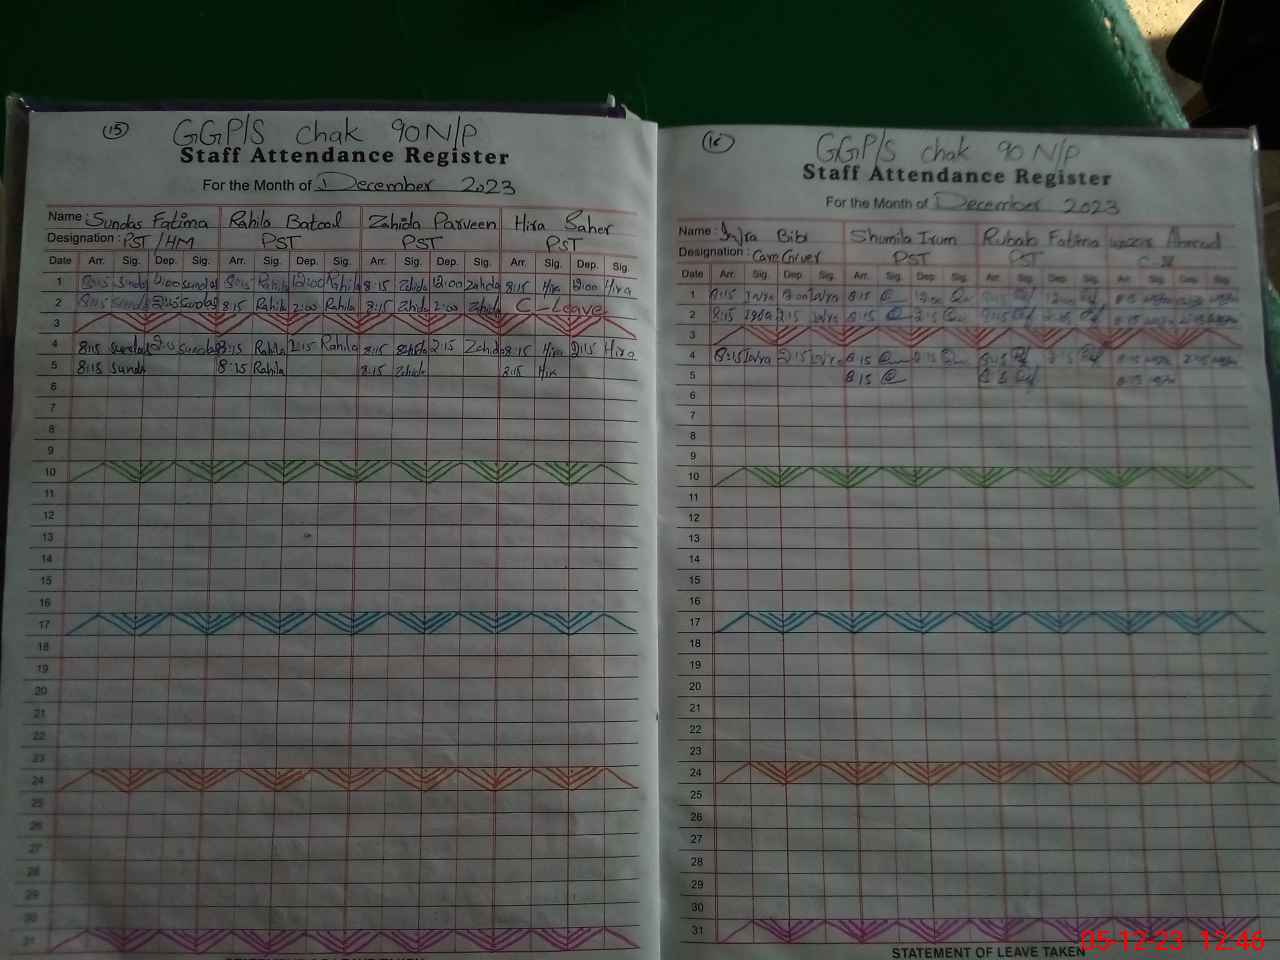 15
GGP/S chak 90 N/P
Staff Attendance Register
For the Month of December 2023
Name: Sundas Fatima Rahila Batool Zahida Parveen Hira Saher
Designation: PST/HM PST PST PST
Date Arr. Sig. Dep. Sig. Arr. Sig. Dep. Sig. Arr. Sig. Dep. Sig. Arr. Sig. Dep. Sig.
1 8:15 Sundas 12:00 Sundas 8:15 Rahila 12:00 Rahila 8:15 Zahida 12:00 Zahida 8:15 Hira 12:00 Hira
2 8:15 Sundas 2:15 Sundas 8:15 Rahila 2:00 Rahila 8:15 Zahida 2:00 Zahida C-Leave
3
4 8:15 Sundas 2:15 Sundas 8:15 Rahila 2:15 Rahila 8:15 Zahida 2:15 Zahida 8:15 Hira 2:15 Hira
5 8:15 Sundas 8:15 Rahila 8:15 Zahida 8:15 Hira
6
7
8
9
10
11
12
13
14
15
16
17
18
19
20
21
22
23
24
25
26
27
28
29
30
31
16
GGP/S chak 90 N/P
Staff Attendance Register
For the Month of December 2023
Name: Injra Bibi Shumila Irum Rubab Fatima Ahmad
Designation: Care Giver PST PST
Date Arr. Sig. Dep. Sig. Arr. Sig. Dep. Sig. Arr. Sig. Dep. Sig. Arr. Sig. Dep. Sig.
1 8:15 12:00 8:15 12:00 8:15 12:00 8:15
2 8:15 2:15 8:15 2:15 8:15 2:15 8:15 2:15
3
4 8:15 2:15 8:15 2:15 8:15 2:15 8:15 2:15
5 8:15 8:15 8:15
6
7
8
9
10
11
12
13
14
15
16
17
18
19
20
21
22
23
24
25
26
27
28
29
30
31
STATEMENT OF LEAVE TAKEN
05-12-23 12:46